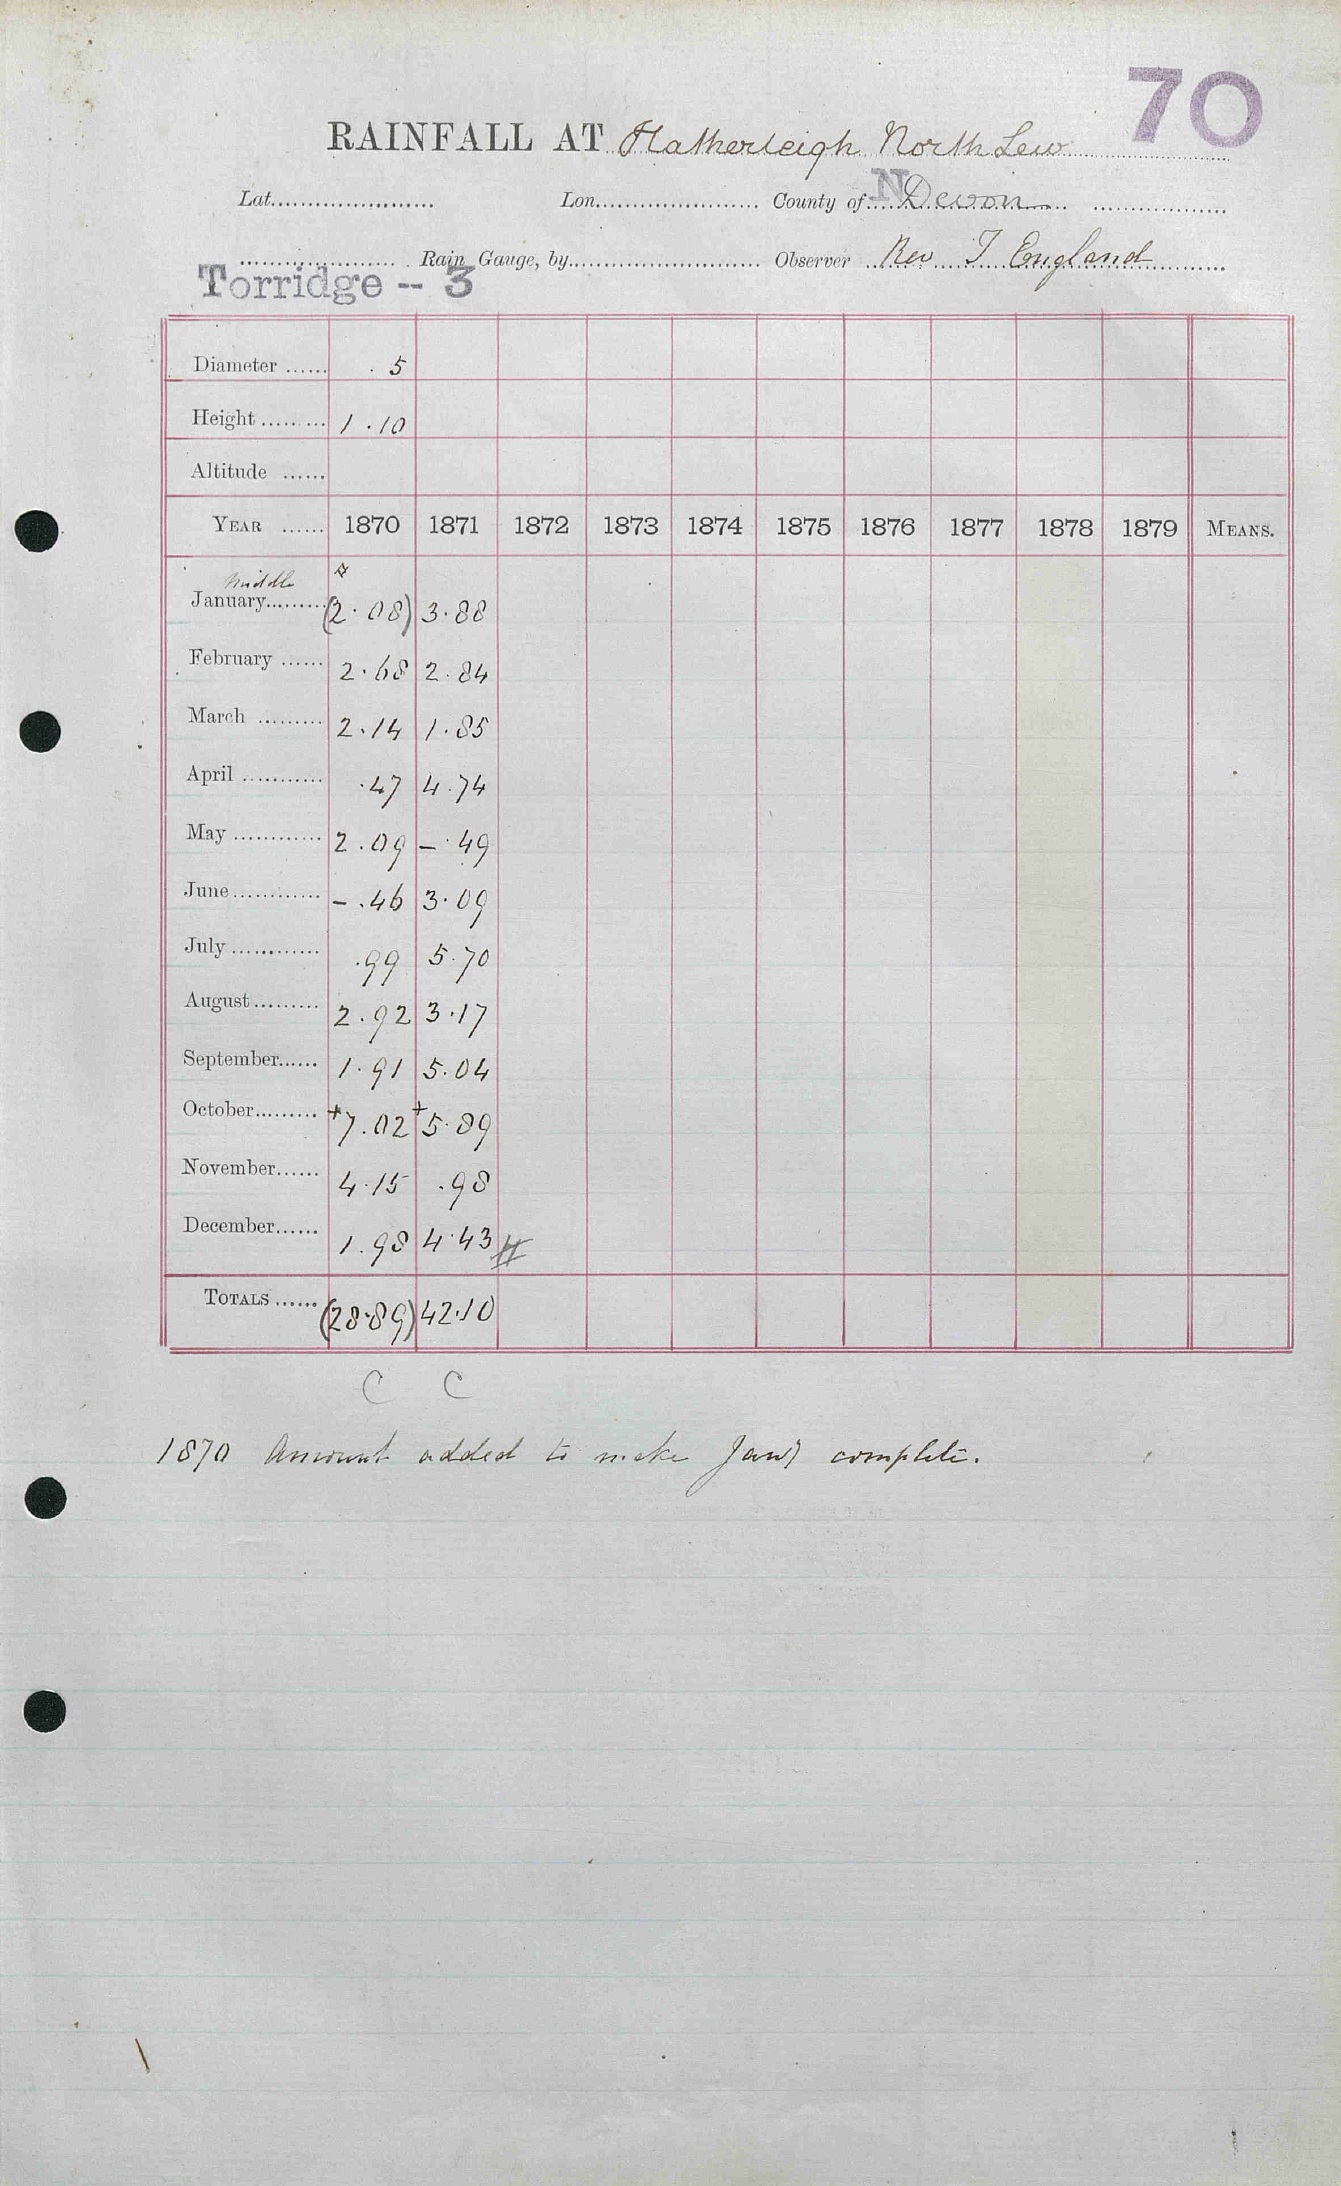 70
RAINFALL AT Hatherleigh North Lew
Lat. Lon. County of N Devon
Rain Gauge, by Observer Rev T England
Torridge -- 3
Diameter 5
Height 1.10
Altitude
YEAR 1870 1871 1872 1873 1874 1875 1876 1877 1878 1879 MEANS.
Middle
January (2.08) 3.88
February 2.68 2.84
March 2.14 1.85
April .47 4.74
May 2.09 - .49
June - .46 3.09
July .99 5.70
August 2.92 3.17
September 1.91 5.04
October +7.02 +5.89
November 4.15 .98
December 1.98 4.43 #
TOTALS (28.89) 42.10
C C
1870 Amount added to make Jany complete.